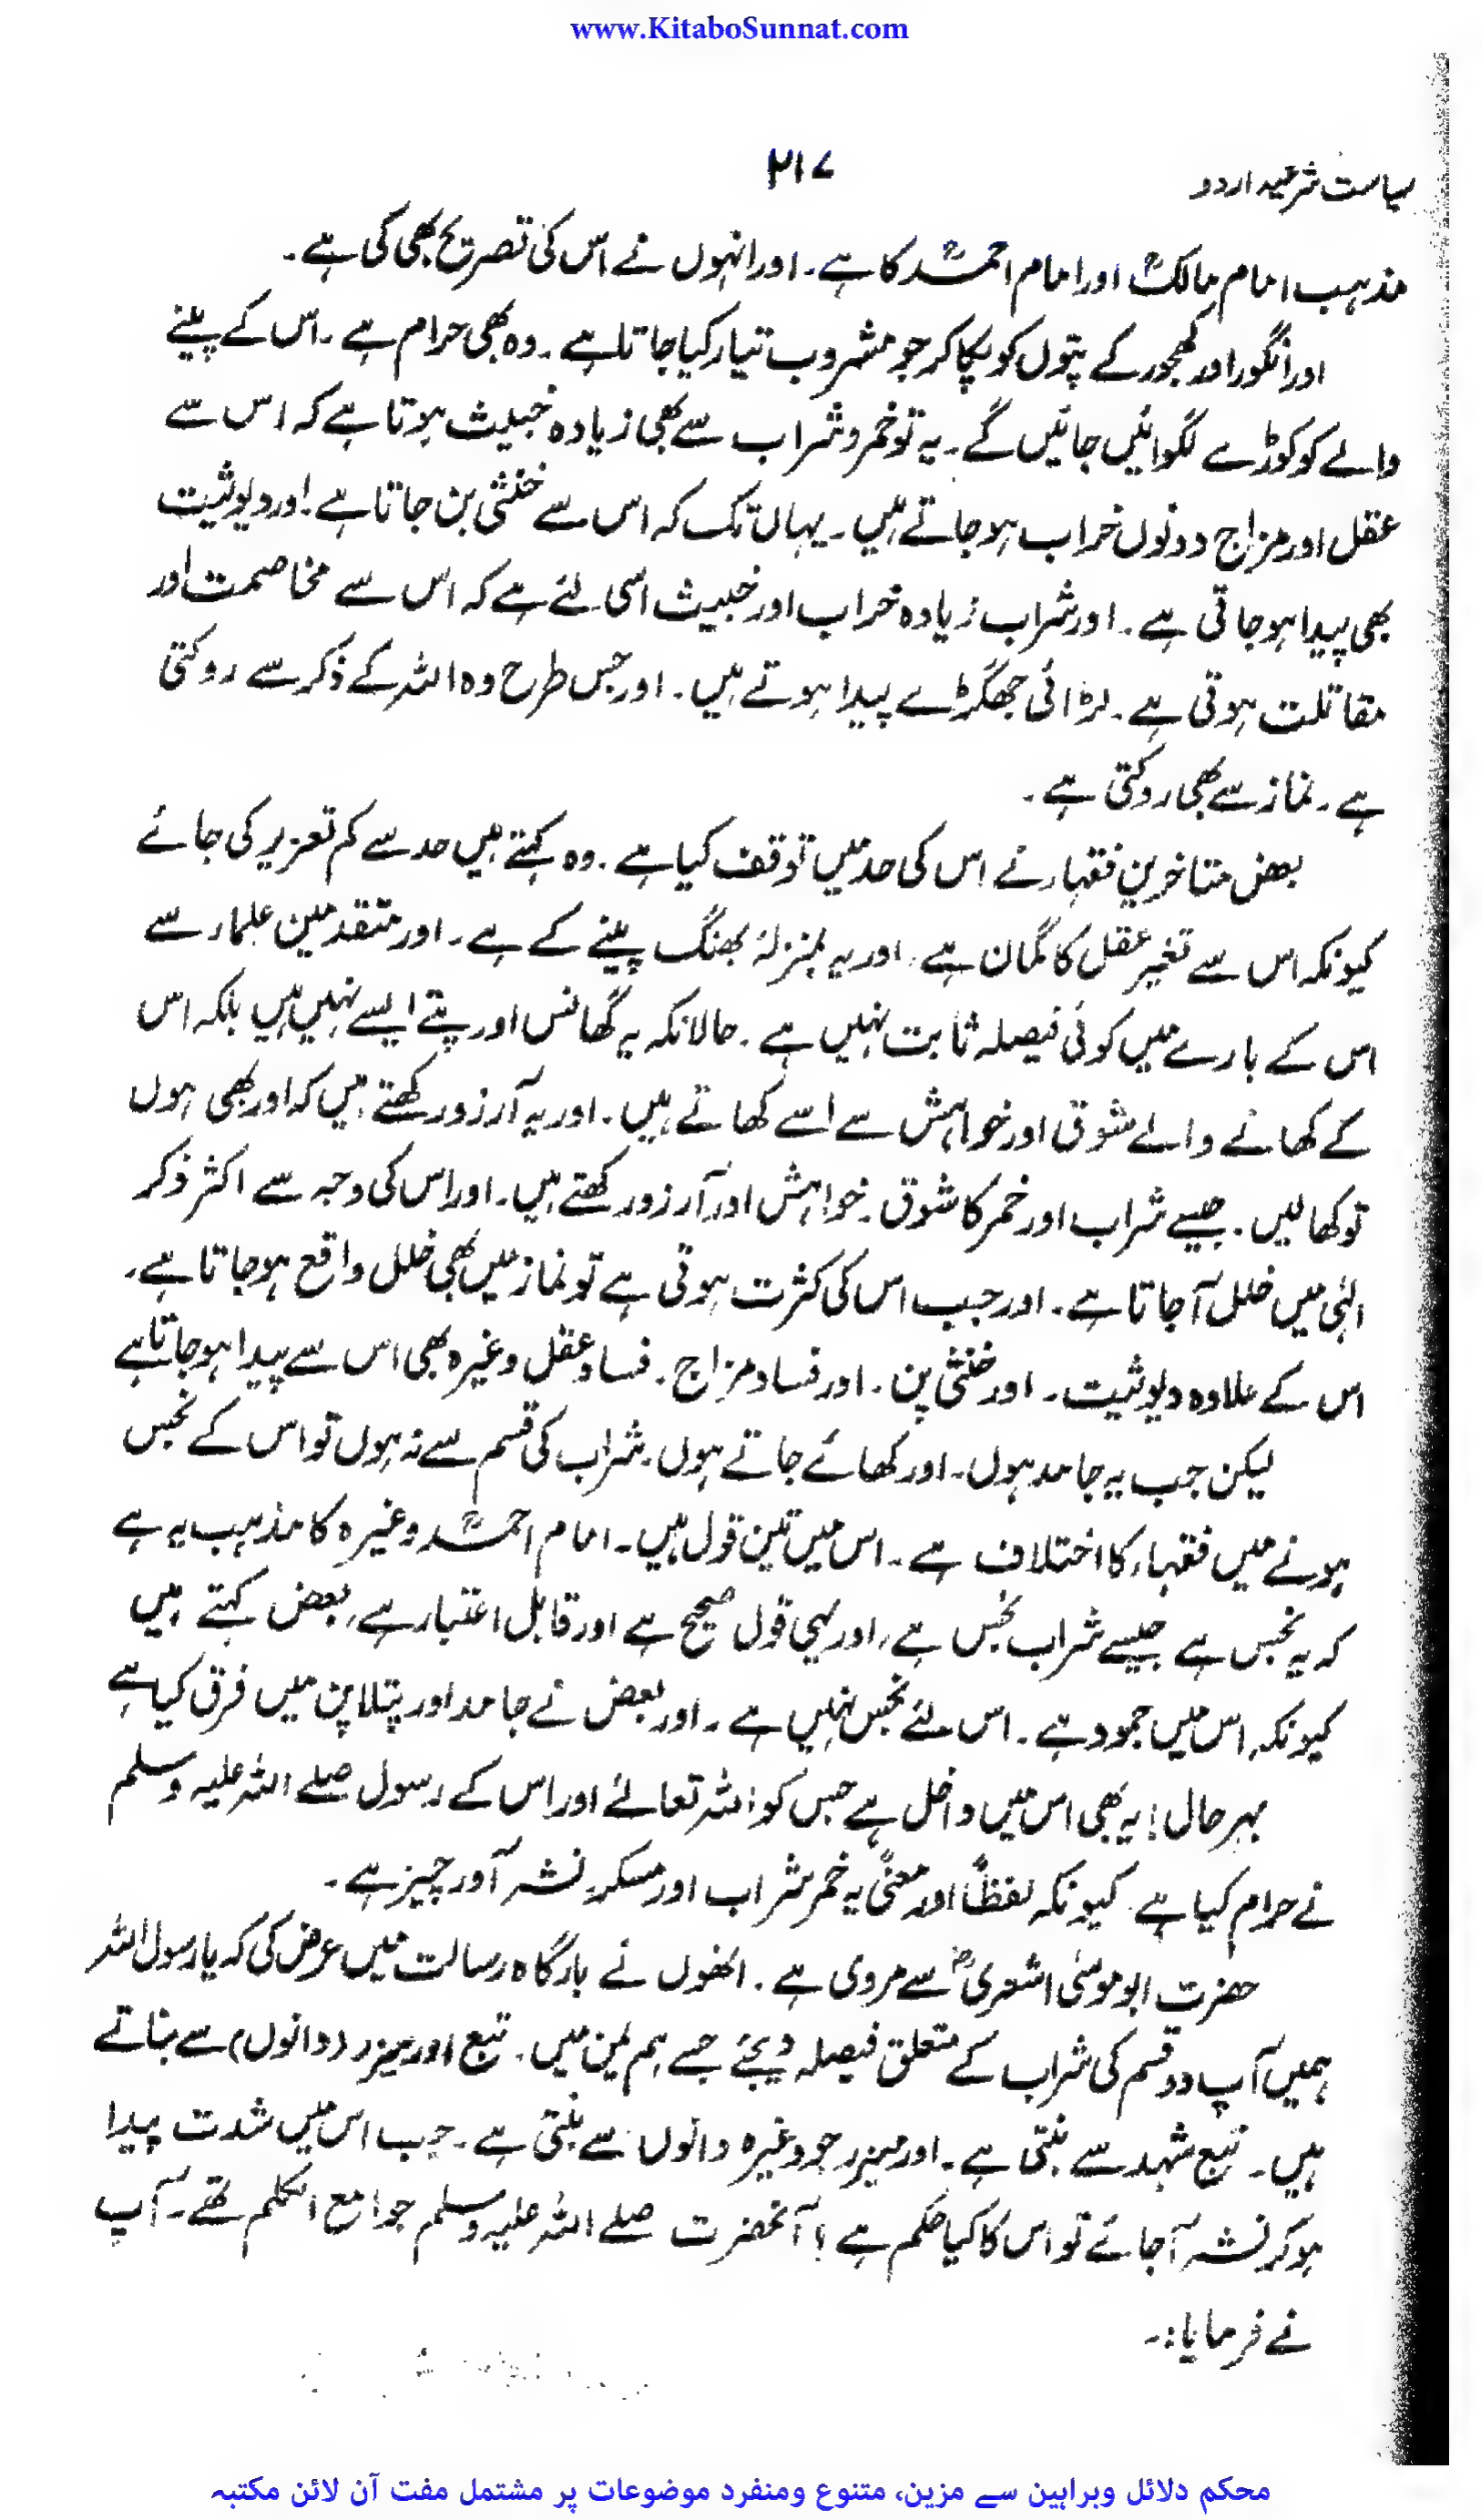 www.KitaboSunnat.com
سیاست شرعیہ اردو
۲۱۷
مذہب امام مالکؒ اور امام احمدؒ کا ہے۔ اور انہوں نے اس کی تصریح بھی کی ہے۔
اور انگور اور کھجور کے پتوں کو پکا کر جو مشروب تیار کیا جاتا ہے۔ وہ بھی حرام ہے۔ اس کے پینے
والے کو کوڑے لگوائیں جائیں گے۔ یہ تو خمر و شراب سے بھی زیادہ خبیث ہوتا ہے کہ اس سے
عقل اور مزاج دونوں خراب ہو جاتے ہیں۔ یہاں تک کہ اس سے خنثی بن جاتا ہے اور دیوثیت
بھی پیدا ہو جاتی ہے۔ اور شراب زیادہ خراب اور خبیث اسی لئے ہے کہ اس سے مخاصمت اور
مقاتلت ہوتی ہے۔ لڑائی جھگڑے پیدا ہوتے ہیں۔ اور جس طرح وہ اللہ کے ذکر سے روکتی
ہے۔ نماز سے بھی روکتی ہے۔
بعض متاخرین فقہاء نے اس کی حد میں توقف کیا ہے۔ وہ کہتے ہیں حد سے کم تعزیر کی جائے
کیونکہ اس سے تغیر عقل کا گمان ہے، اور یہ بمنزلۂ بھنگ پینے کے ہے۔ اور متقدمین علماء سے
اس کے بارے میں کوئی فیصلہ ثابت نہیں ہے۔ حالانکہ یہ گھانس اور پتے ایسے نہیں ہیں بلکہ اس
کے کھانے والے شوق اور خواہش سے اسے کھاتے ہیں۔ اور یہ آرزو رکھتے ہیں کہ اور بھی ہوں
تو کھا لیں۔ جیسے شراب اور خمر کا شوق۔ خواہش اور آرزو رکھتے ہیں۔ اور اس کی وجہ سے اکثر ذکر
الہٰی میں خلل آ جاتا ہے۔ اور جب اس کی کثرت ہوتی ہے تو نماز میں بھی خلل واقع ہو جاتا ہے۔
اس کے علاوہ دیوثیت۔ اور خنثی پن۔ اور فساد مزاج۔ فساد عقل وغیرہ بھی اس سے پیدا ہو جاتا ہے
لیکن جب یہ جامد ہوں۔ اور کھائے جاتے ہوں۔ شراب کی قسم سے نہ ہوں تو اس کے نجس
ہونے میں فقہاء کا اختلاف ہے۔ اس میں تین قول ہیں۔ امام احمدؒ وغیرہ کا مذہب یہ ہے
کہ یہ نجس ہے جیسے شراب نجس ہے، اور یہی قول صحیح ہے اور قابل اعتبار ہے، بعض کہتے ہیں
کیونکہ اس میں جمود ہے۔ اس لئے نجس نہیں ہے۔ اور بعض نے جامد اور پتلا پن میں فرق کیا ہے
بہر حال! یہ بھی اس میں داخل ہے جس کو اللہ تعالےٰ اور اس کے رسول صلے اللہ علیہ وسلم
نے حرام کیا ہے۔ کیونکہ لفظاً اور معنیً یہ خمر شراب اور مسکر نشہ آور چیز ہے۔
حضرت ابو موسیٰ اشعریؓ سے مروی ہے۔ انھوں نے بارگاہ رسالت میں عرض کی کہ یا رسول اللہ
ہمیں آپ دو قسم کی شراب کے متعلق فیصلہ دیجئے جسے ہم یمن میں۔ تبع اور میزر (دانوں) سے بناتے
ہیں۔ تبع شہد سے بنتی ہے۔ اور میزر جو وغیرہ دانوں سے بنتی ہے۔ جب اس میں شدت پیدا
ہو کر نشہ آ جائے تو اس کا کیا حکم ہے؟ آنحضرت صلے اللہ علیہ وسلم جوامع الکلم تھے۔ آپ
نے فرمایا:۔
محکم دلائل وبراہین سے مزین، متنوع ومنفرد موضوعات پر مشتمل مفت آن لائن مکتبہ